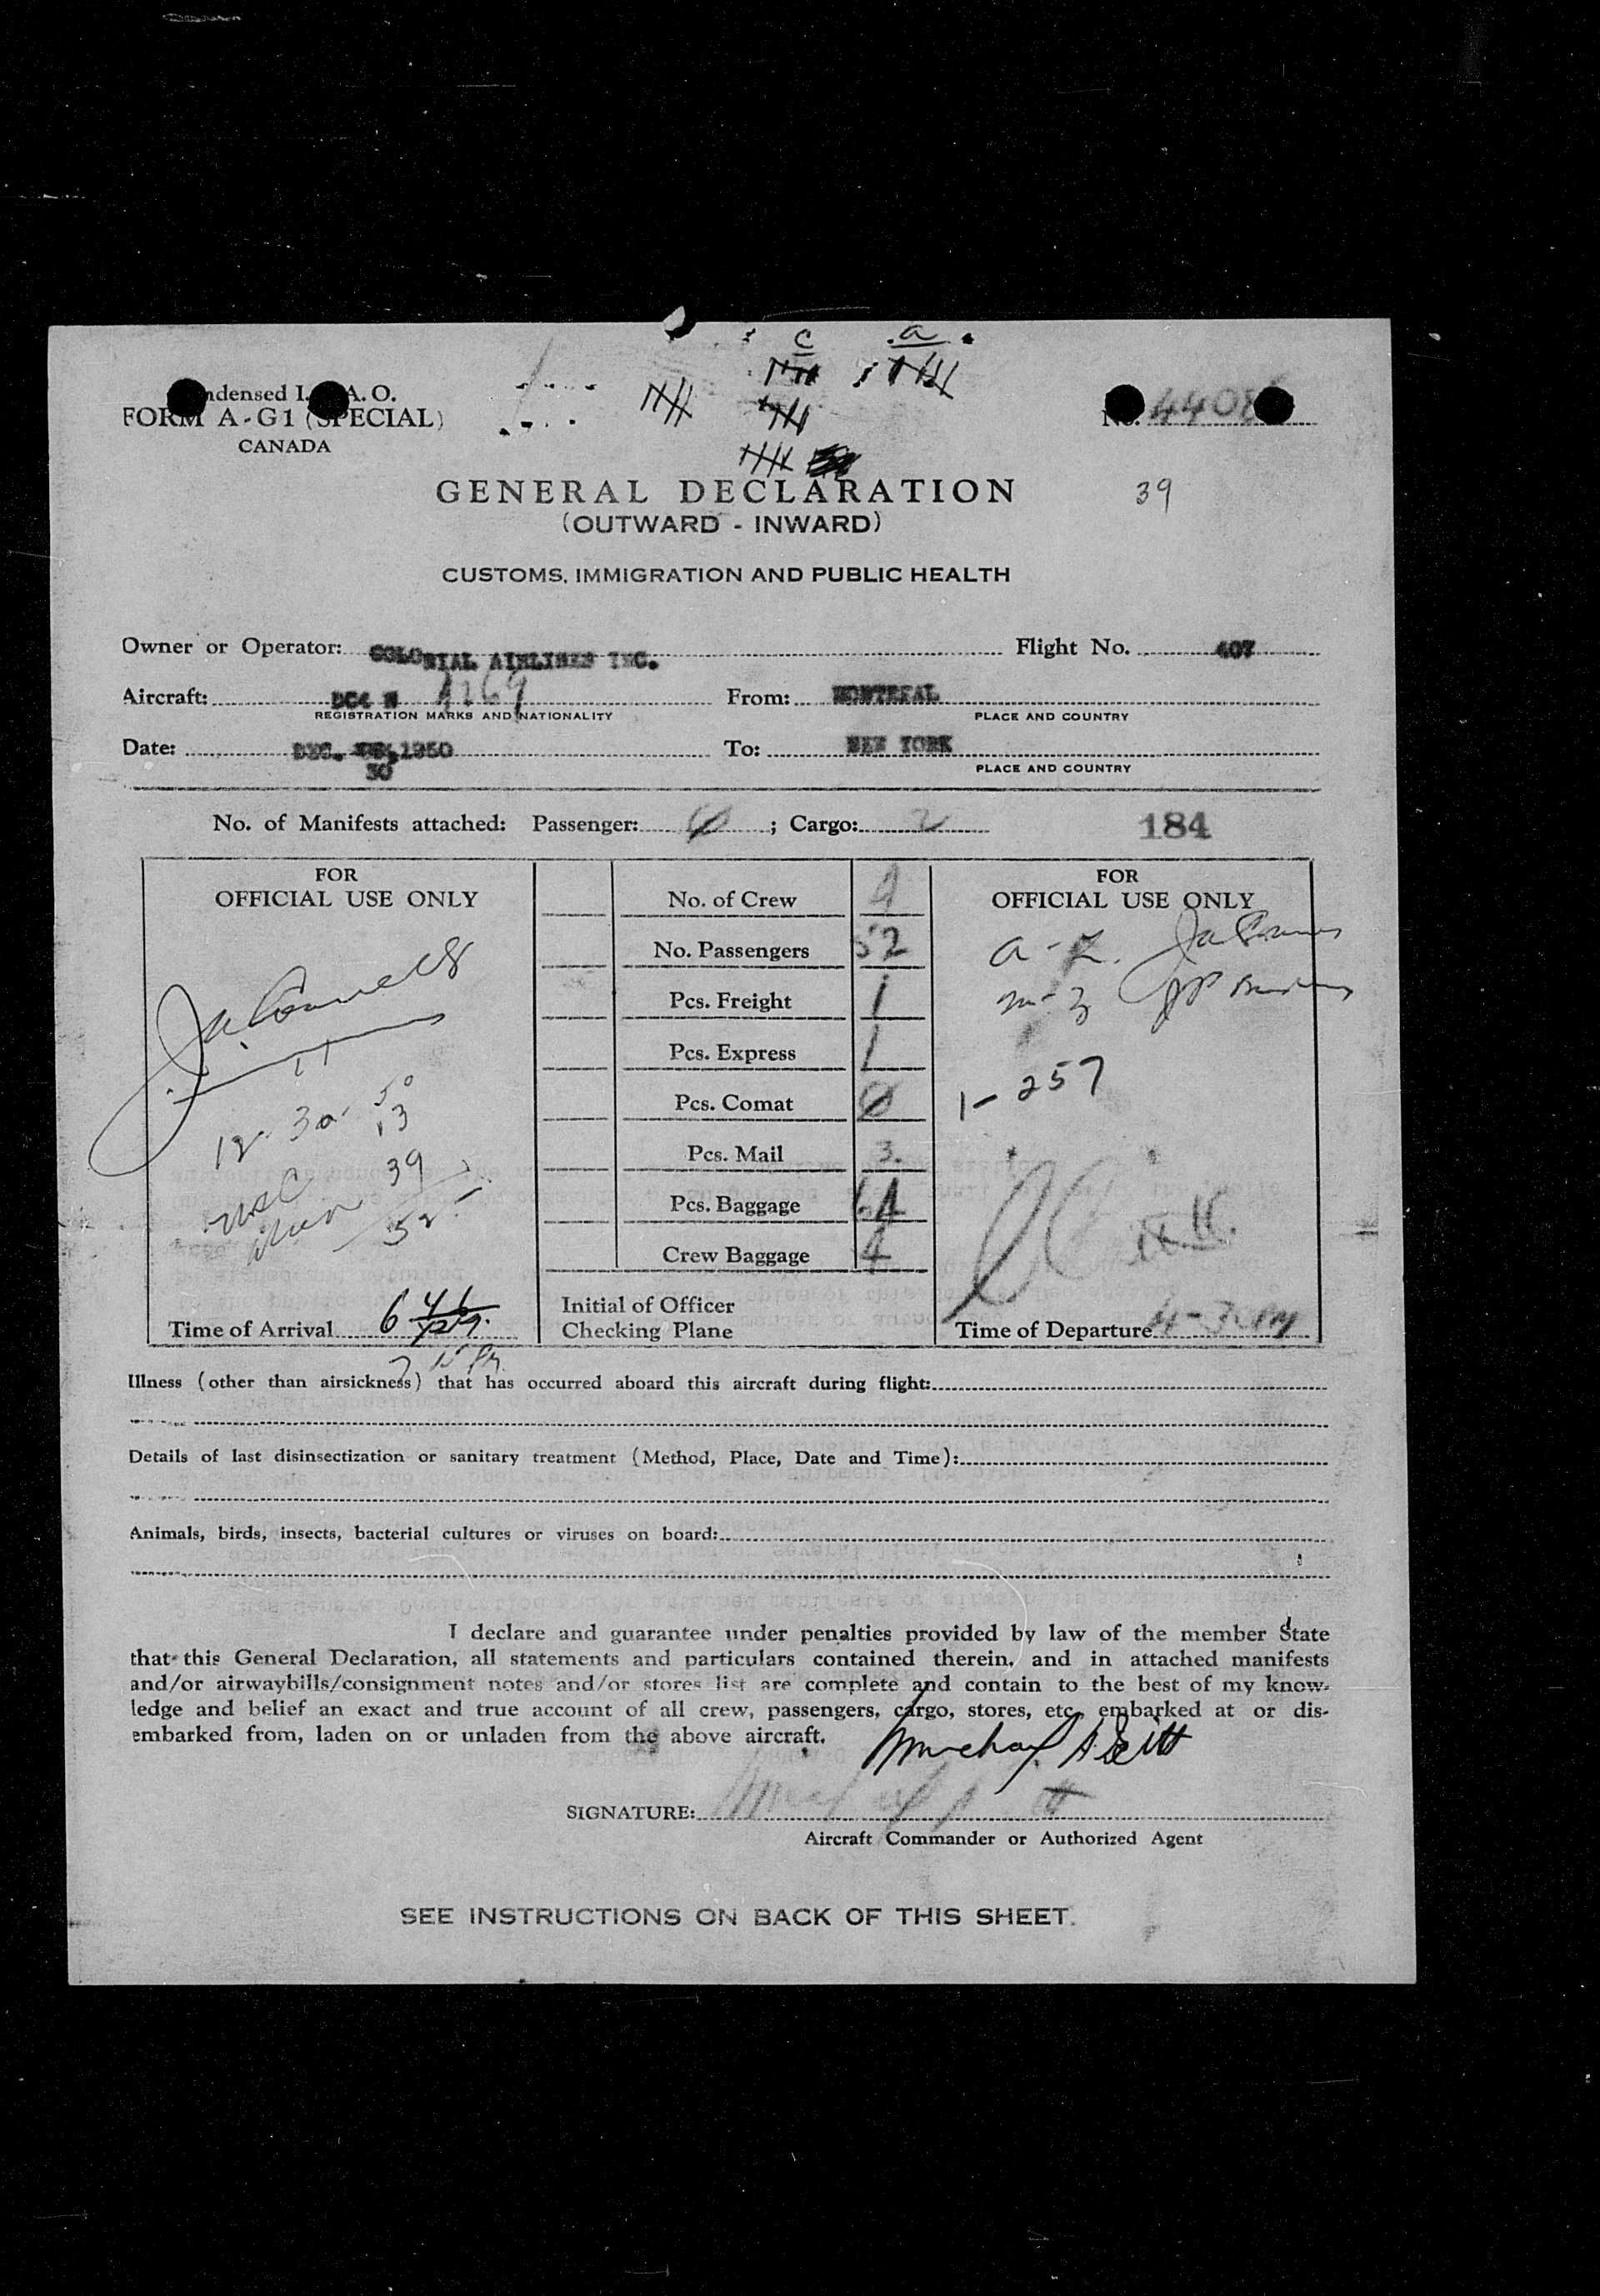 c a
ndensed I. A. O.
FORM A-G1 (SPECIAL)
CANADA
No. 4408
GENERAL DECLARATION
39
(OUTWARD - INWARD)
CUSTOMS, IMMIGRATION AND PUBLIC HEALTH
Owner or Operator: COLONIAL AIRLINES INC. Flight No. 407
Aircraft: DC4 N From: MONTREAL
REGISTRATION MARKS AND NATIONALITY PLACE AND COUNTRY
Date: DEC. 1950 To: NEW YORK
30 PLACE AND COUNTRY
No. of Manifests attached: Passenger: ; Cargo: 2 184
FOR
OFFICIAL USE ONLY
12-30-50
13
39
52
Time of Arrival 6 46
No. of Crew 4
No. Passengers 52
Pcs. Freight 1
Pcs. Express 1
Pcs. Comat 0
Pcs. Mail 3
Pcs. Baggage 64
Crew Baggage 4
Initial of Officer
Checking Plane
FOR
OFFICIAL USE ONLY
a - L.
m - z
1-257
Time of Departure
Illness (other than airsickness) that has occurred aboard this aircraft during flight:
Details of last disinsectization or sanitary treatment (Method, Place, Date and Time):
Animals, birds, insects, bacterial cultures or viruses on board:
I declare and guarantee under penalties provided by law of the member State
that this General Declaration, all statements and particulars contained therein, and in attached manifests
and/or airwaybills/consignment notes and/or stores list are complete and contain to the best of my know-
ledge and belief an exact and true account of all crew, passengers, cargo, stores, etc. embarked at or dis-
embarked from, laden on or unladen from the above aircraft.
SIGNATURE:
Aircraft Commander or Authorized Agent
SEE INSTRUCTIONS ON BACK OF THIS SHEET.